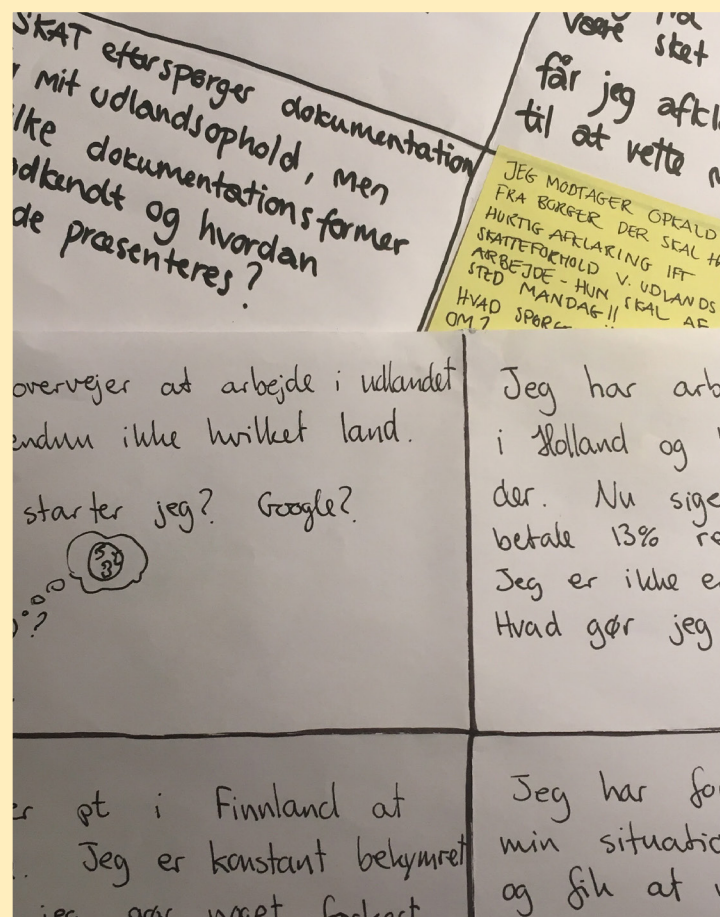 SKAT efterspørger dokumentation
mit udlandsophold, men
ilke dokumentationsformer
odkendt og hvordan
de præsenteres?
være sket
får jeg afkl
til at vette
JEG MODTAGER OPKALD
FRA BORGER DER SKAL H
HURTIG AFKLARING IFT
SKATTEFORHOLD V. UDLANDS
ARBEJDE - HUN SKAL AF
STED MANDAG!!
HVAD SPØRG
OM?
overvejer at arbejde i udlandet
endnu ikke hvilket land.
starter jeg? Google?
?
Jeg har arb
i Holland og
der. Nu sige
betale 13% re
Jeg er ikke e
Hvad gør jeg
er pt i Finnland at
Jeg er konstant bekymret
jeg gør noget forkert
Jeg har fo
min situatio
og fik at v